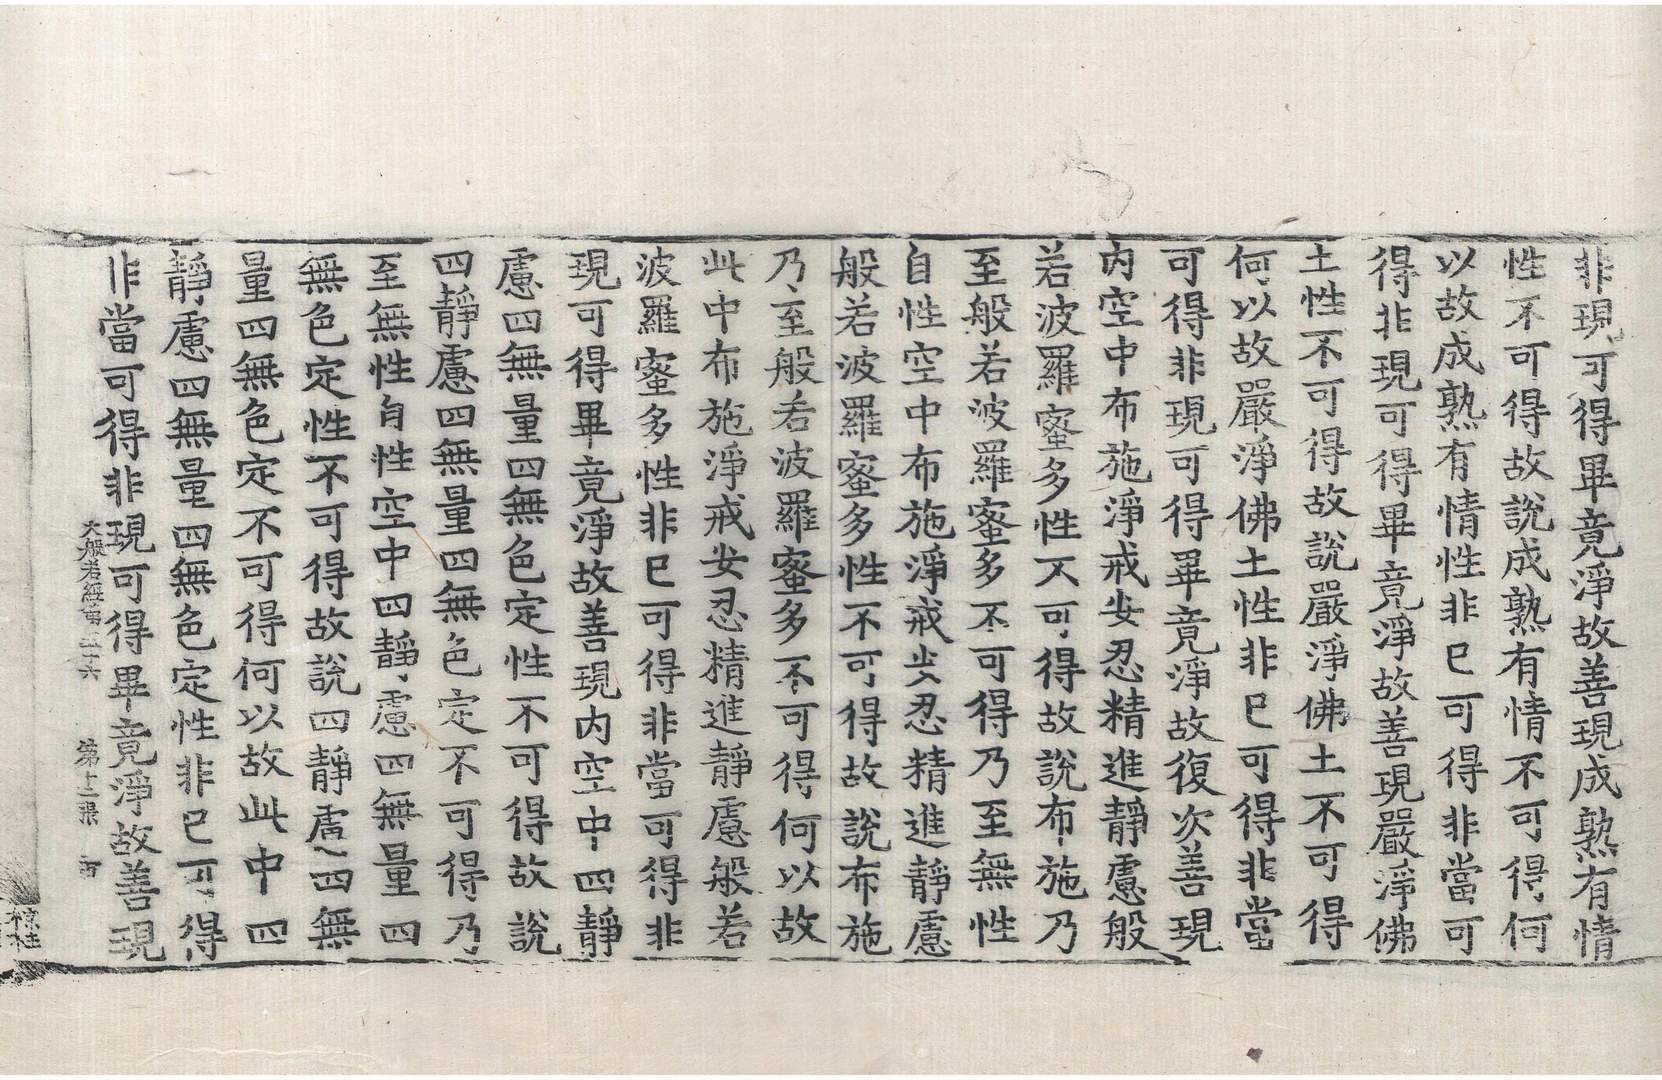 非現可得畢竟淨故善現成熟有情
性不可得故說成熟有情不可得何
以故成熟有情性非已可得非當可
得非現可得畢竟淨故善現嚴淨佛
土性不可得故說嚴淨佛土不可得
何以故嚴淨佛土性非已可得非當
可得非現可得畢竟淨故復次善現
內空中布施淨戒安忍精進靜慮般
若波羅蜜多性不可得故說布施乃
至般若波羅蜜多不可得乃至無性
自性空中布施淨戒安忍精進靜慮
般若波羅蜜多性不可得故說布施
乃至般若波羅蜜多不可得何以故
此中布施淨戒安忍精進靜慮般若
波羅蜜多性非已可得非當可得非
現可得畢竟淨故善現內空中四靜
慮四無量四無色定性不可得故說
四靜慮四無量四無色定不可得乃
至無性自性空中四靜慮四無量四
無色定性不可得故說四靜慮四無
量四無色定不可得何以故此中四
靜慮四無量四無色定性非已可得
非當可得非現可得畢竟淨故善現
大般若經第 六 第 張